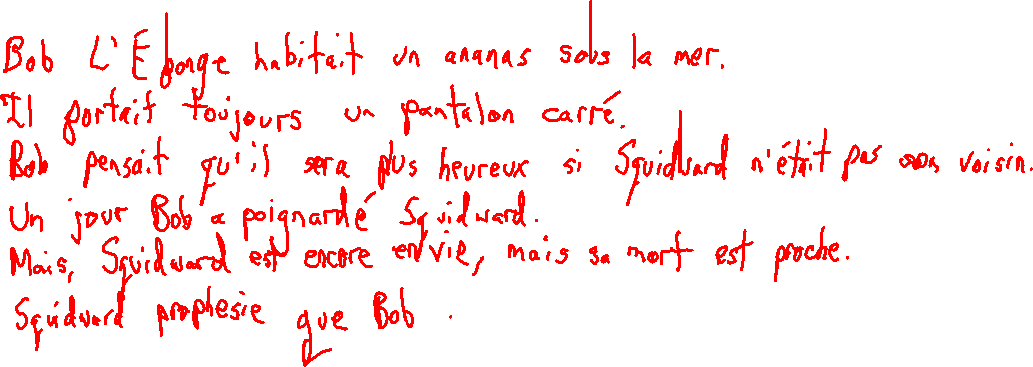 Bob L'Eponge habitait un ananas sous la mer.
Il portait toujours un pantalon carré.
Bob pensait qu'il sera plus heureux si Squidward n'était pas son voisin.
Un jour Bob a poignardé Squidward.
Mais, Squidward est encore en vie, mais sa mort est proche.
Squidward prophesie que Bob .